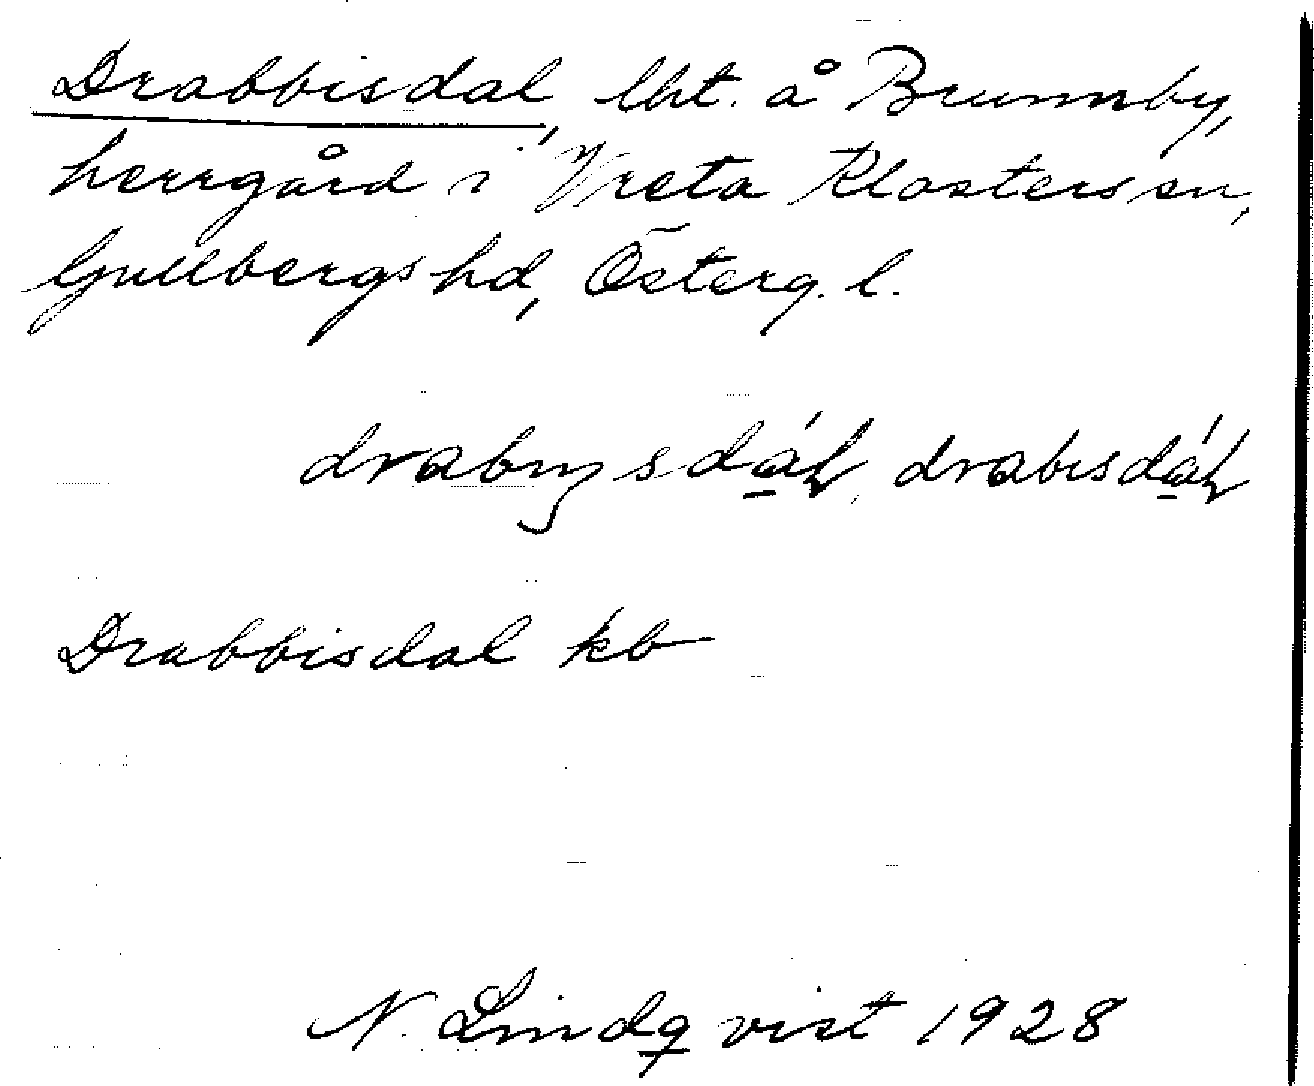 Drabbisdal, lht. å Brunnby,
herrgård i Vreta Klosters sn,
Gullbergs hd, Österg. l.
drabıŋsdál, drabısdál
Drabbisdal kb
N. Lindqvist 1928